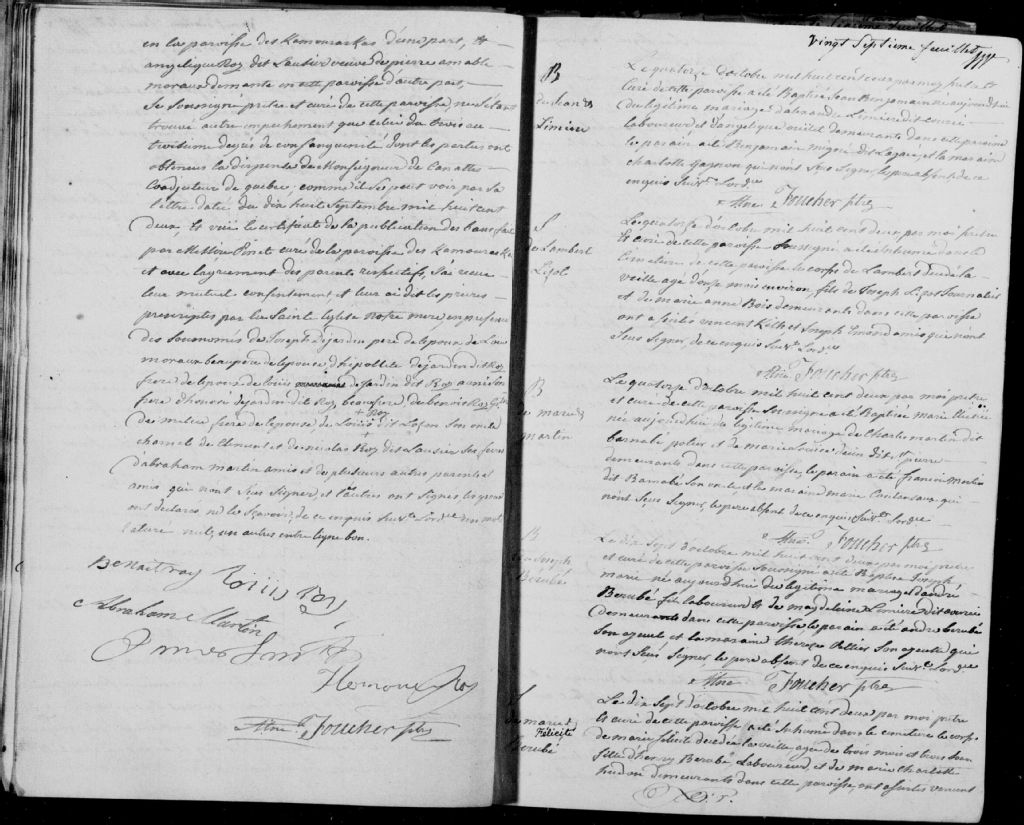 en la paroisse des Kamouraskas d'une part, et
angelique Roy dit Lausier veuve de pierre amable
moraux demeurante en cette paroisse d'autre part,
Je Soussigné prêtre et curé de cette paroisse ne s'etant
trouvé autre empechement que celui du trois au
troisieme degré de consanguinité dont les parties ont
obtenus la dispense de Monseigneur de Canattes
Coadjuteur de quebec, comme il se peut voir par sa
lettre datée du dix huit Septembre mil huit cent
deux, et vûe le certificat de la publication des bans fait
par Messire Pinet curé de la paroisse des Kamouraska
et avec l'agrement des parents respectifs, J'ai reçu
leur mutuel consentement et leur ai dit les prieres
prescriptes par la Sainte Eglise Notre mere en presence
des Soussignés de Joseph dejardin pere de l'epoux de Louis
moraux beaupere de l'epoux d'hipollite dejardin dit Roy
frere de l'epoux de louis dejardin dit Roy aussi son
frere d'honoré dejardin dit Roy beaufrere de benoit Roy
frere de l'epouse de Louis dit Lafon son oncle
charles de Clement et de nicolas Roy dit Lausier ses freres
d'abraham martin amis et de plusieurs autres parents et
amis qui n'ont Seus Signer, et les autres ont Signés les quels
ont declarés ne le Savoir, de ce enquis Suivt. Lordce. un mot
rature nul, un autre entre ligne bon.
Benait roy Louis Roy
Abraham Martin
Honoré Roy
Alne. Foucher ptre
Vingt Septieme feuillet
B
de Jean B
Limiere
Le quatorse d'octobe mil huit cent deux par moi prêtre et
Curé de cette paroisse a été Baptisé Jean Benjamin né aujourd'hui
du légitime mariage d'alexandre Lemiere dit
laboureur et d'angelique ouellet demeurants dans cette paroisse
le parain a été Benjamin mignié dit Lagacé et la maraine
charlotte Gagnon qui n'ont Seus Signer, le pere absent de ce
enquis Suivt. Lordce
Alne. Foucher ptre
S
de Lambert
Lizot
Le quatorse d'octobre mil huit cent deux par moi prêtre
et curé de cette paroisse Soussigné a été inhumé dans le
Cimetiere de cette paroisse le corps de Lambert decedé la
veille agé d'onze mois environ, fils de Joseph Lizot Journalier
et de marie anne Bois demeurants dans cette paroisse
ont assistés vincent Kelly et Joseph Emond amis qui n'ont
Seus Signer, de ce enquis Suivt. Lordce
Alne. Foucher ptre
B
de marie
martin
Le quatorse d'octobre mil huit cent deux par moi prêtre
et curé de cette paroisse Soussigné a été Baptisé marie
née aujourd'hui du légitime mariage de Charle martin dit
barnabé potier et de marie louise dit St. pierre
demeurants dans cette paroisse, le parain a été francois Martin
dit Barnabé Son oncle et la maraine marie qui
n'ont Seus Signer, le pere absent de ce enquis Suivt. Lordce
Alne. Foucher ptre
B
de Joseph
Berubé
Le dix Sept d'octobre mil huit cent deux par moi prêtre
et curé de cette paroisse Soussigné a été Baptisé Joseph
marie né aujourd'hui du légitime mariage d'andré
Berubé fils laboureur et de magdeleine Lemiere dit
demeurants dans cette paroisse le parain a été andré berubé
Son ayeul et la maraine therese Pellier Son ayeule qui
n'ont Seus Signer le pere absent de ce enquis Suivt. Lordce
Alne. Foucher ptre
S
de marie
Félicité
Berubé
Le dix Sept d'octobre mil huit cent deux par moi prêtre
et curé de cette paroisse a été Inhumé dans le cimetiere le corps
de marie félicité decedée la veille agée de trois mois et trois Jours
fille d'henry Berubé, Laboureur, et de marie Charlotte
hudon demeurants dans cette paroisse, ont assistés vincent